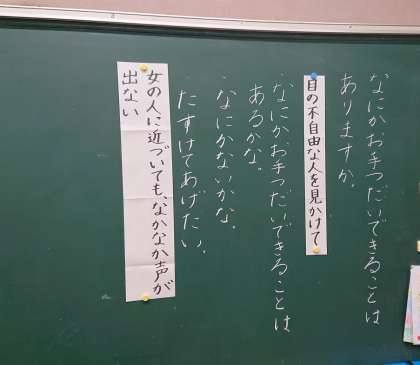 なにかお手つだいできることは
ありますか。
目の不自由な人を見かけて
・なにかお手つだいできることは
あるかな。
・なにかないかな。
・たすけてあげたい。
女の人に近づいても、なかなか声が
出ない